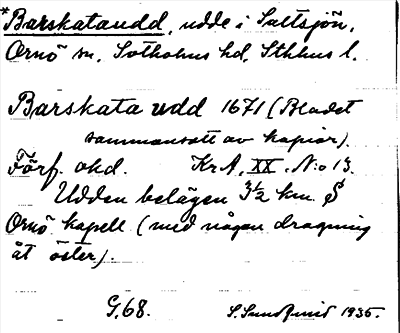 *Barskataudd, udde i Saltsjön,
Ornö sn, Sotholms hd, Sthlms l.
Barskata udd 1671 (Bladet
sammansatt av kopior).
Förf. okd. Kr.A, XX. N:o 13.
Udden belägen 3½ km. S
Ornö kapell (med någon dragning
åt öster).
G.68. S. Sundqvist 1935.